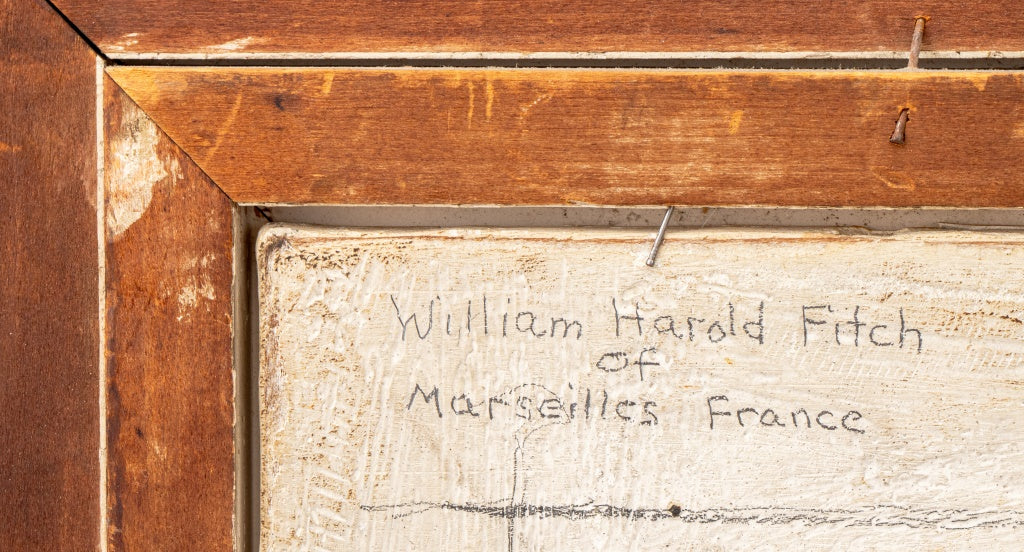 William Harold Fitch
of
Marseilles France